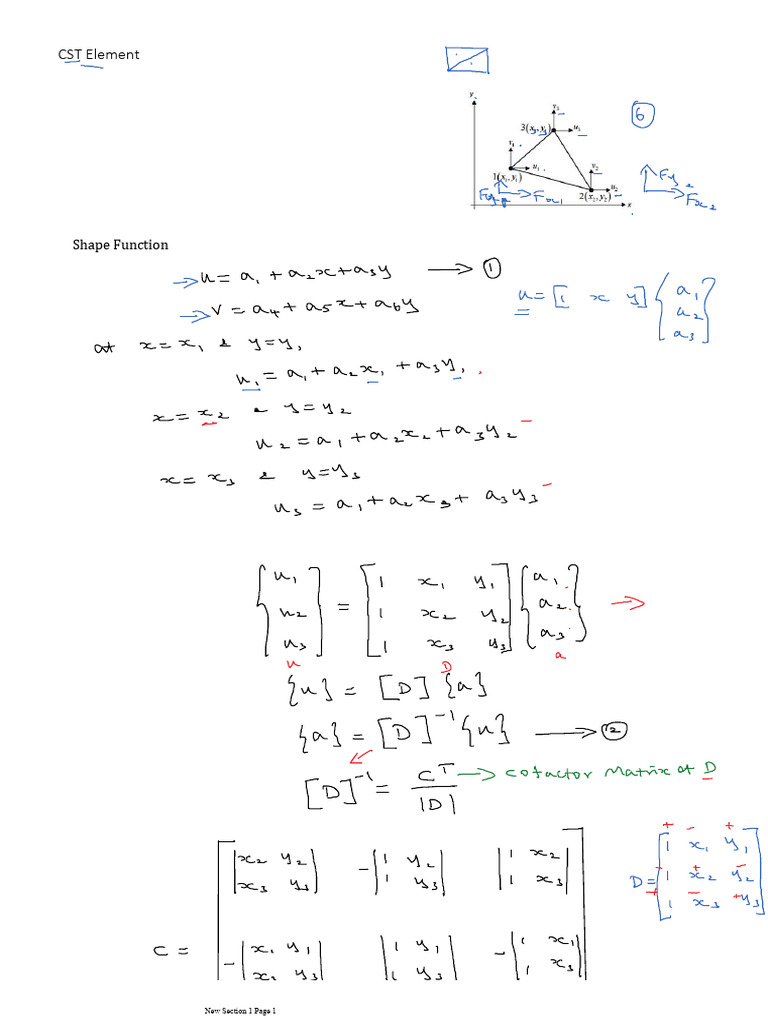 CST Element
y
v3
3(x3, y3)
u3
6
v1
u1
1(x1, y1)
v2
u2
2(x2, y2)
x
Fx1
Fy2
Fx2
Shape Function
u = a1 + a2x + a3y → 1
v = a4 + a5x + a6y
u = [1 x y] {a1 a2 a3}
at x = x1 & y = y1
u1 = a1 + a2x1 + a3y1
x = x2 & y = y2
u2 = a1 + a2x2 + a3y2
x = x3 & y = y3
u3 = a1 + a2x3 + a3y3
{u1 [1 x1 y1 {a1
u2 = 1 x2 y2 a2 →
u3} 1 x3 y3] a3}
u D a
{u} = [D] {a}
{a} = [D]⁻¹ {u} → 2
[D]⁻¹ = Cᵀ / |D| → cofactor matrix of D
+ - +
|x2 y2| -|1 y2| |1 x2|
|x3 y3| |1 y3| |1 x3|
D = [1 x1 y1
1 x2 y2
1 x3 y3]
C =
-|x1 y1| |1 y1| -|1 x1|
|x3 y3| |1 y3| |1 x3|
New Section 1 Page 1